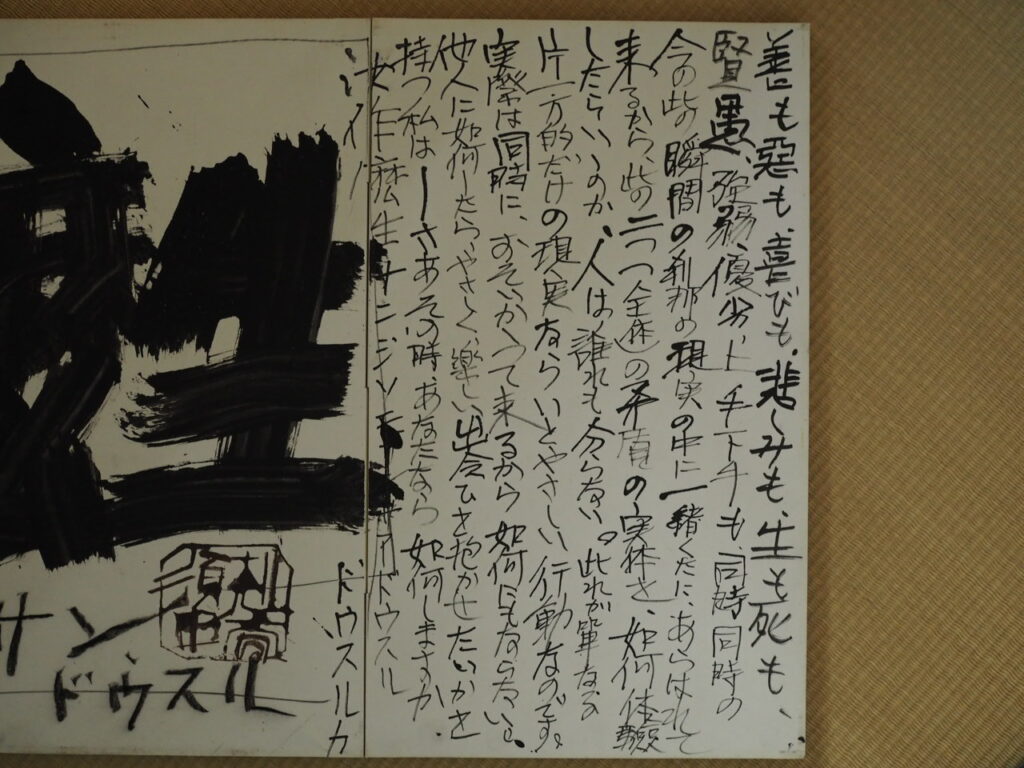 善も惡も、喜びも、悲しみも、生も死も、
賢愚、強弱、優劣、上手下手も同時同時の
今の此の瞬間の刹那の現実の中に一緒くたに、あらはれて
来るから、此の二つの全逆の矛盾の実体を、如何体験
したらいいのか、人は誰れも分らない。此れが単なる
片一方的だけの現実ならいとやさしい行動なのです。
実際は同時に、おそいかゝって来るから如何にもならない。
他人に如何したら、やさしく、楽しい出会ひを抱かせたいかを
持つ私は―さあその時あなたなら如何しますか
ドウスル
ドウスルカ
サン
ドウスル